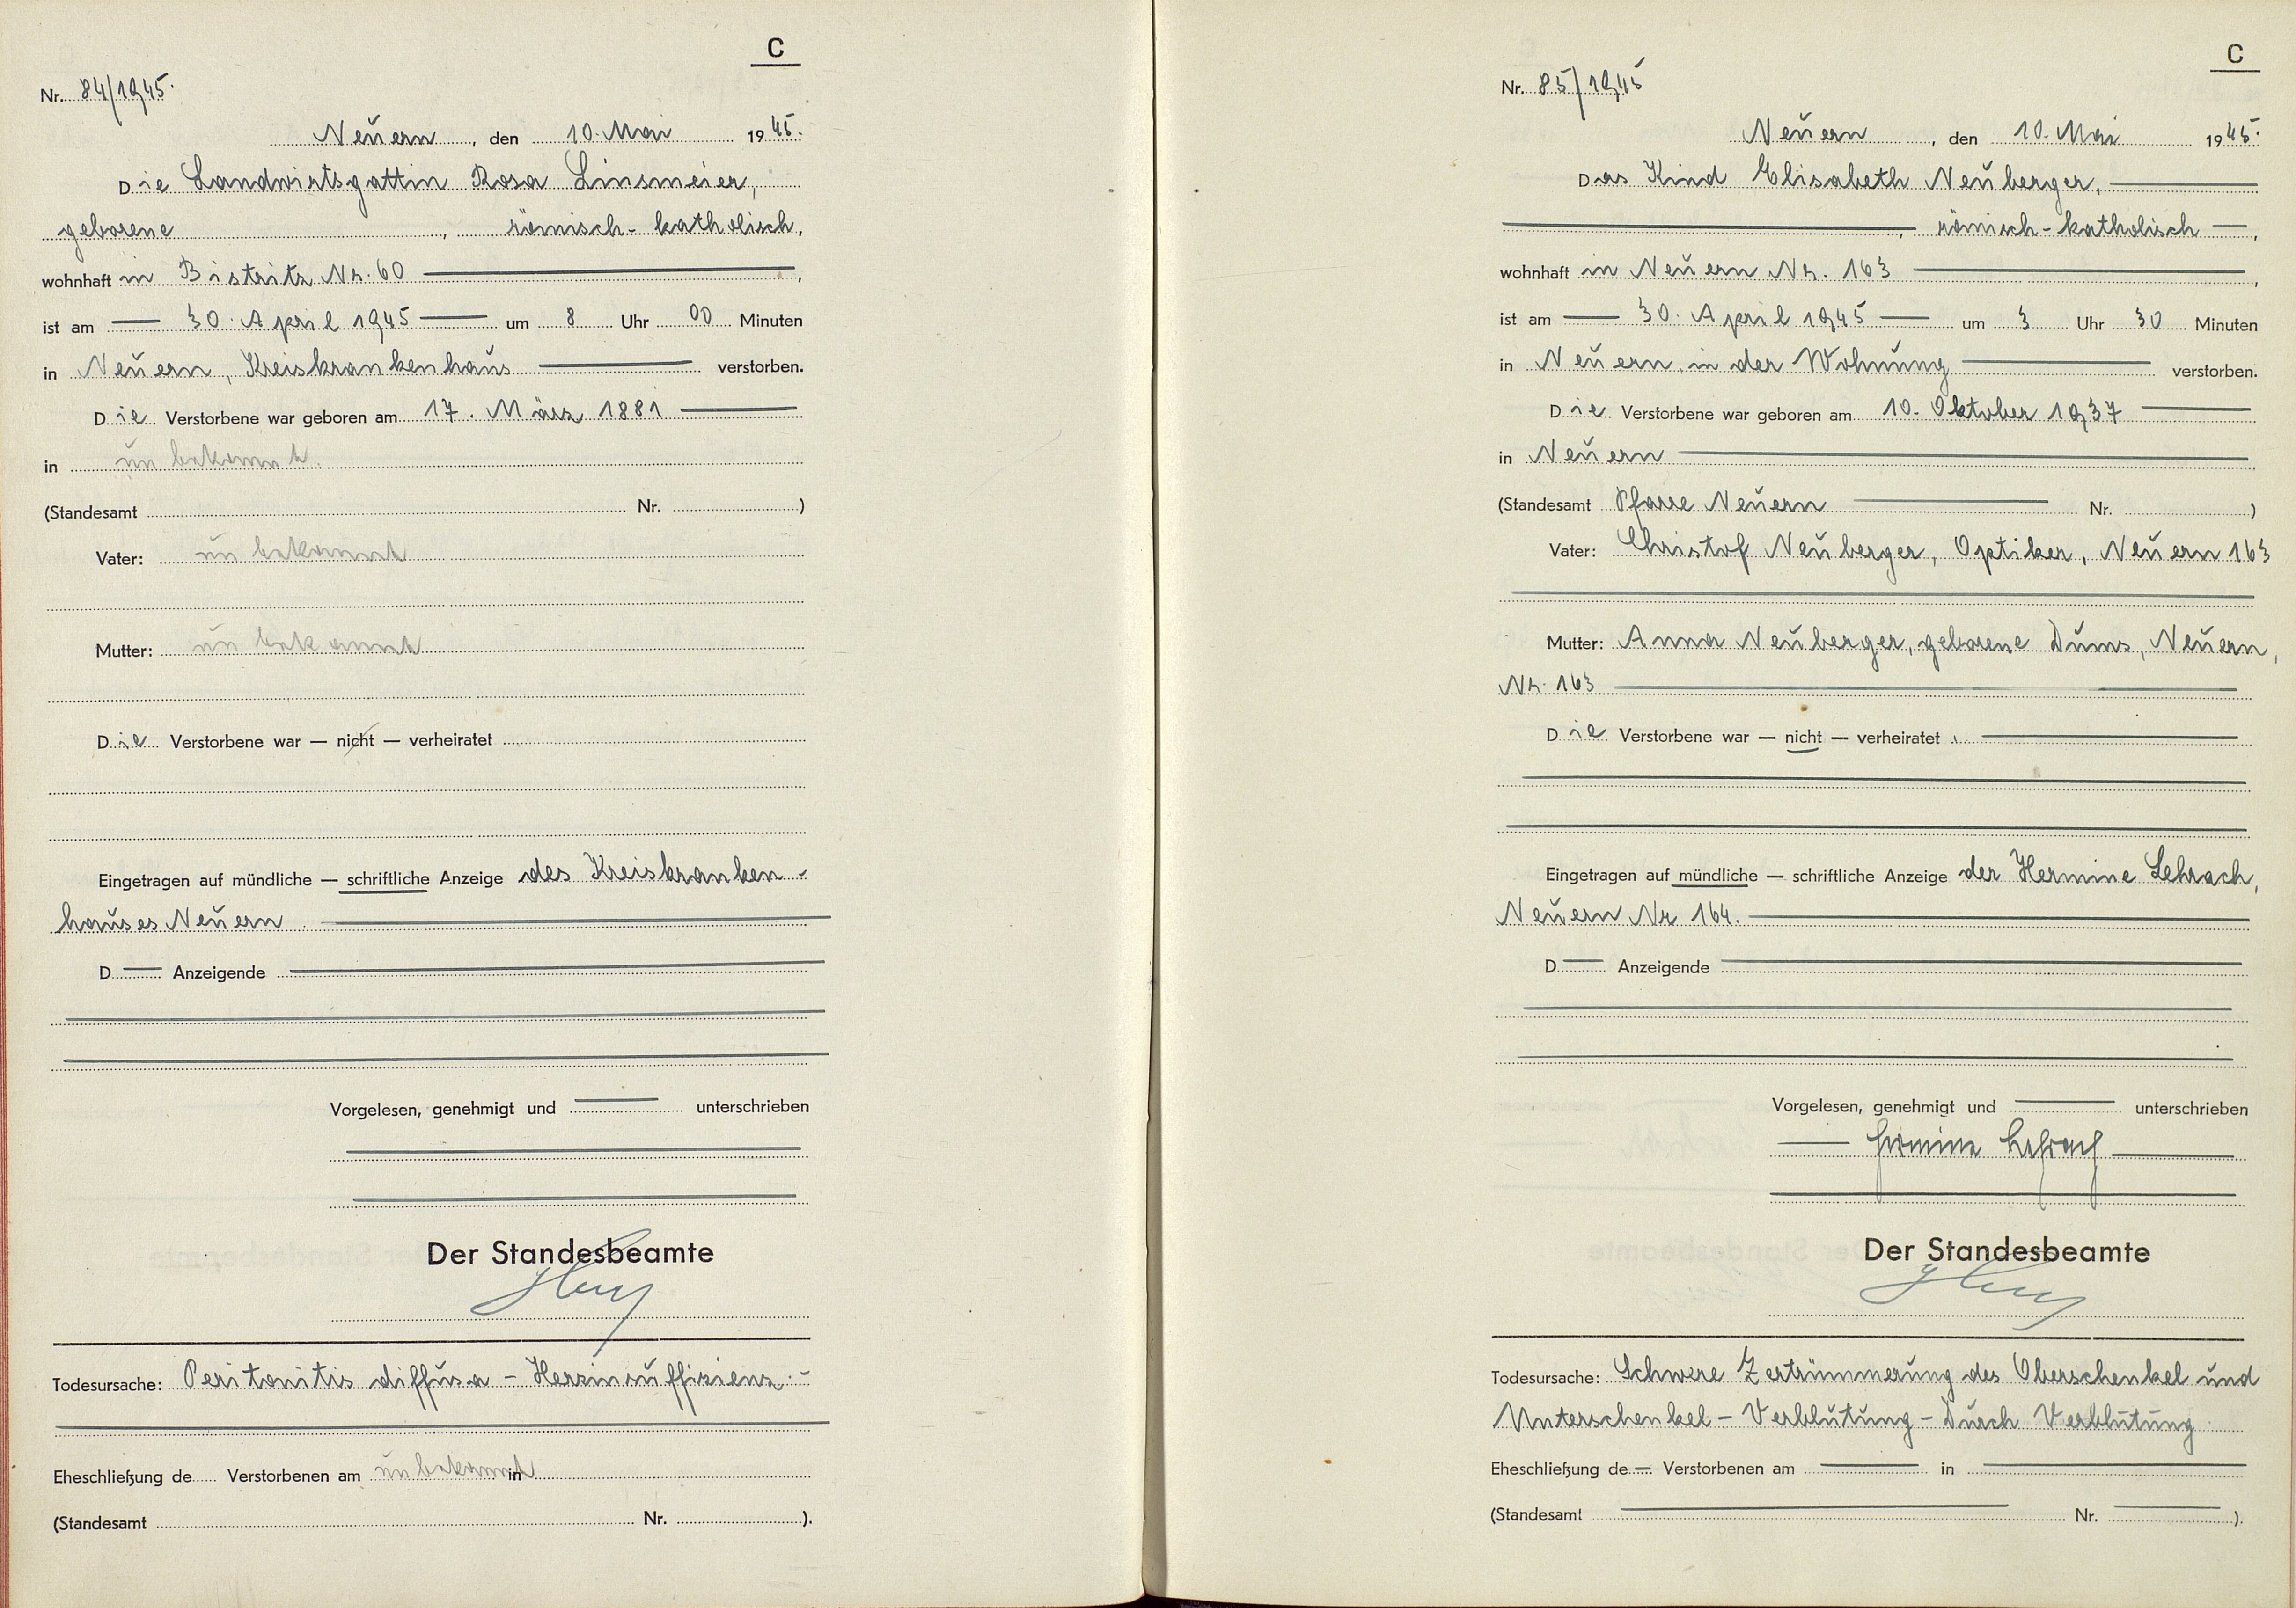 C
Nr. 84/1945.
Neuern, den 10. Mai 1945.
Die Landwirtsgattin Rosa Linsmeier,
geborene , römisch-katholisch,
wohnhaft in Bistritz Nr. 60 ,
ist am 30. April 1945 um 8 Uhr 00 Minuten
in Neuern, Kreiskrankenhaus verstorben.
Die Verstorbene war geboren am 17. März 1881
in unbekannt.
(Standesamt Nr. )
Vater: unbekannt
Mutter: unbekannt
Die Verstorbene war — nicht — verheiratet
Eingetragen auf mündliche — schriftliche Anzeige des Kreiskranken-
hauses Neuern
D — Anzeigende
Vorgelesen, genehmigt und — unterschrieben
Der Standesbeamte
Todesursache: Peritonitis diffusa - Herzinsuffizienz.-
Eheschließung de Verstorbenen am unbekannt in
(Standesamt Nr. ).
C
Nr. 85/1945
Neuern, den 10. Mai 1945.
Das Kind Elisabeth Neuberger,
, römisch-katholisch —,
wohnhaft in Neuern Nr. 163 ,
ist am — 30. April 1945 — um 3 Uhr 30 Minuten
in Neuern, in der Wohnung verstorben.
Die Verstorbene war geboren am 10. Oktober 1937
in Neuern
(Standesamt Pfarre Neuern Nr. )
Vater: Christof Neuberger, Optiker, Neuern 163
Mutter: Anna Neuberger, geborene Dums, Neuern,
Nr. 163
Die Verstorbene war — nicht — verheiratet.
Eingetragen auf mündliche — schriftliche Anzeige der Hermine Lehrach,
Neuern Nr 164.
D — Anzeigende
Vorgelesen, genehmigt und — unterschrieben
Hermine Lehrach
Der Standesbeamte
Todesursache: Schwere Zertrümmerung des Oberschenkel und
Unterschenkel - Verblutung - Durch Verblutung
Eheschließung de — Verstorbenen am — in
(Standesamt Nr. ).